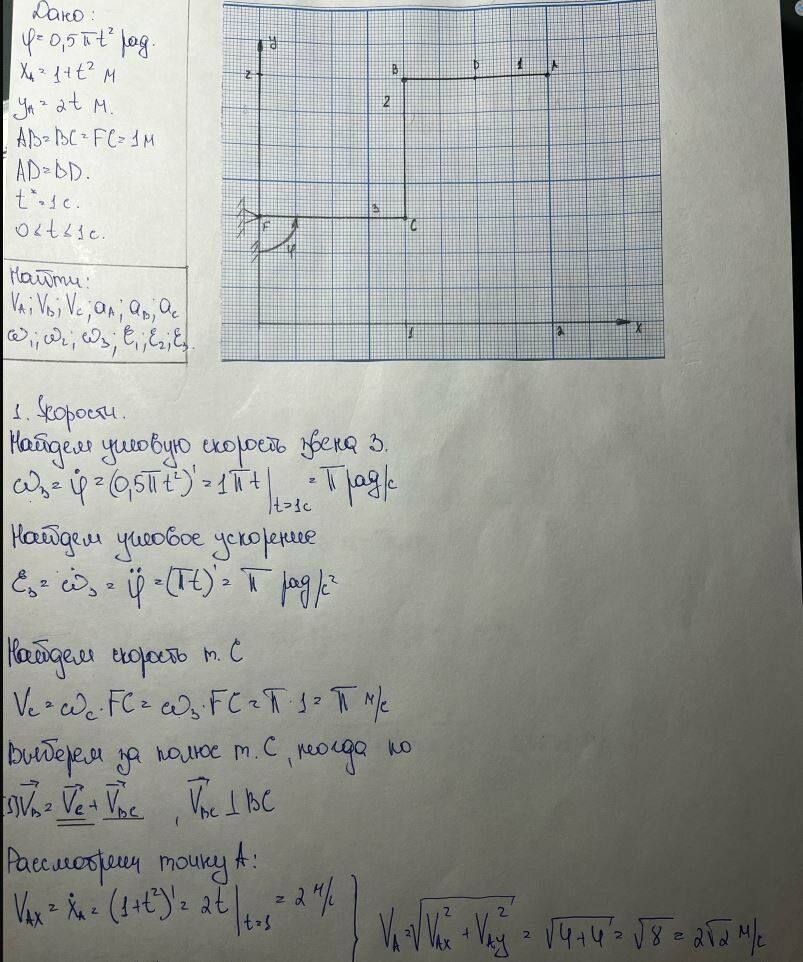 Дано:
φ=0,5πt² рад.
x_A=1+t² м
y_A=2t м.
AB=BC=FC=1м
AD=BD.
t*=1с.
0≤t≤1с.
Найти:
V_A; V_B; V_C; a_A; a_B; a_C
ω₁; ω₂; ω₃; ε₁; ε₂; ε₃.
y
2
B D 1 A
2
3
F C
φ
1 2 x
1. Скорости.
Найдем угловую скорость звена 3.
ω₃=φ̇=(0,5πt²)'=1πt|t=1c=π рад/с
Найдем угловое ускорение
ε₃=ω̇₃=φ̈=(πt)'=π рад/с²
Найдем скорость т. С
V_C=ω_C·FC=ω₃·FC=π·1=π м/с
Выберем за полюс т. С, тогда по
1) V⃗_B=V⃗_C+V⃗_BC , V⃗_BC⊥BC
Рассмотрим точку А:
V_AX=ẋ_A=(1+t²)'=2t|t=1=2 м/с } V_A=√(V_AX²+V_AY²)=√(4+4)=√8=2√2 м/с